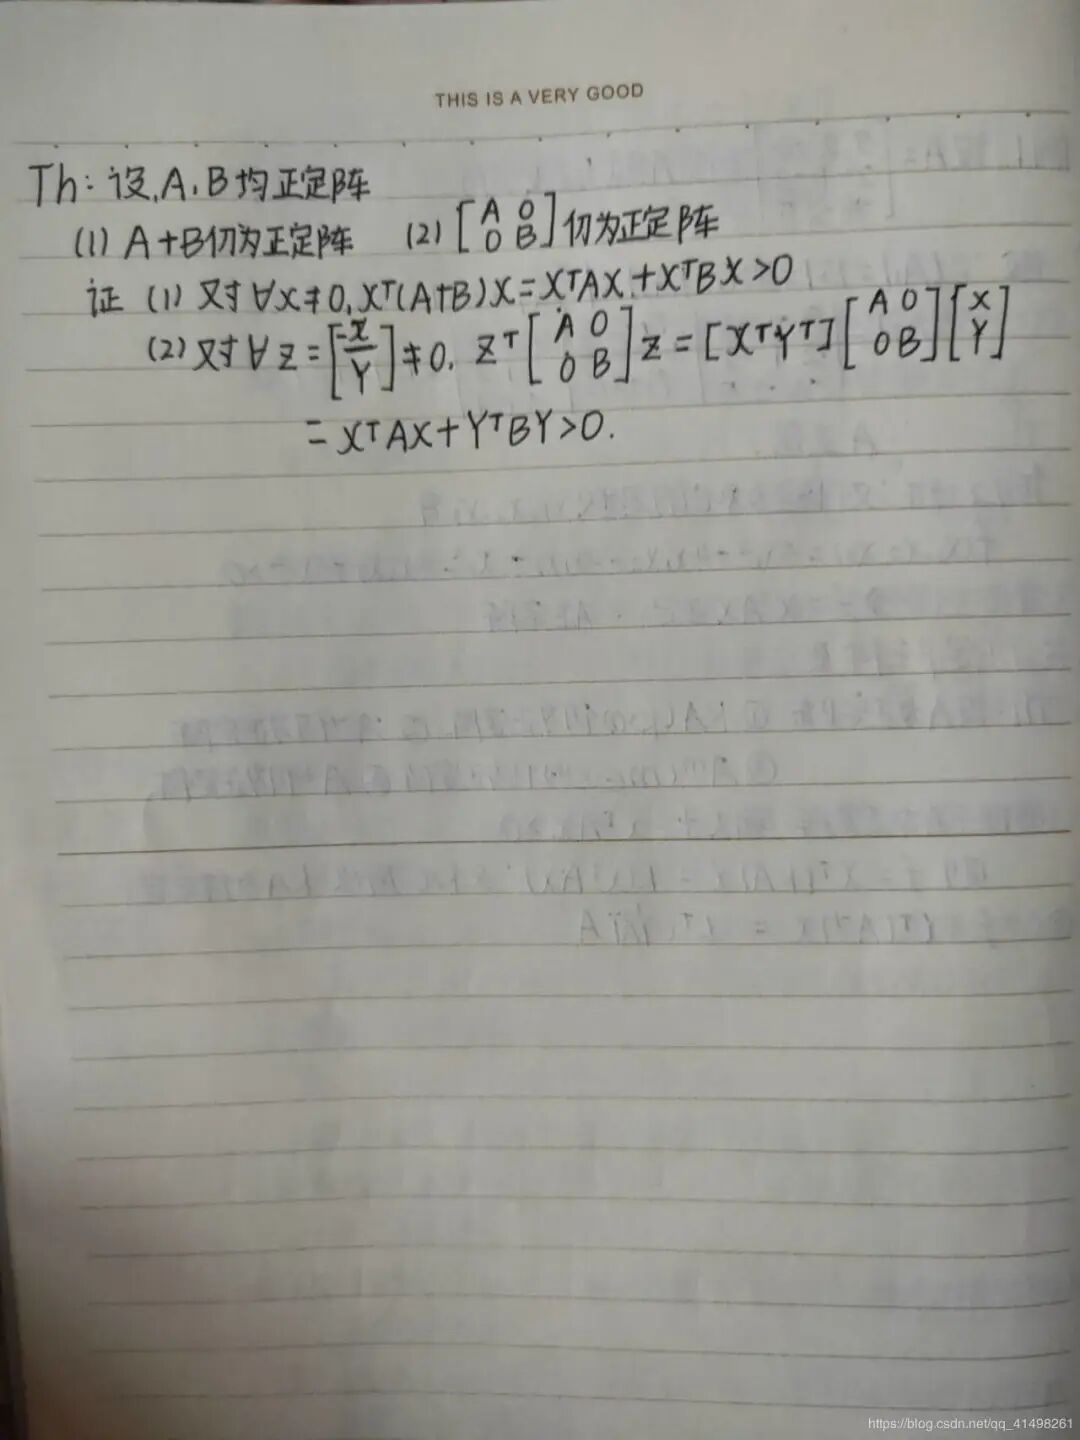 THIS IS A VERY GOOD
Th: 设A、B均正定阵
(1) A+B仍为正定阵 (2) [A 0; 0 B] 仍为正定阵
证 (1) 对∀x≠0, Xᵀ(A+B)X=XᵀAX+XᵀBX>0
(2) 对∀z=[x; Y]≠0. zᵀ[A 0; 0 B]z=[XᵀYᵀ][A 0; 0 B][X; Y]
=XᵀAX+YᵀBY>0.
https://blog.csdn.net/qq_41498261